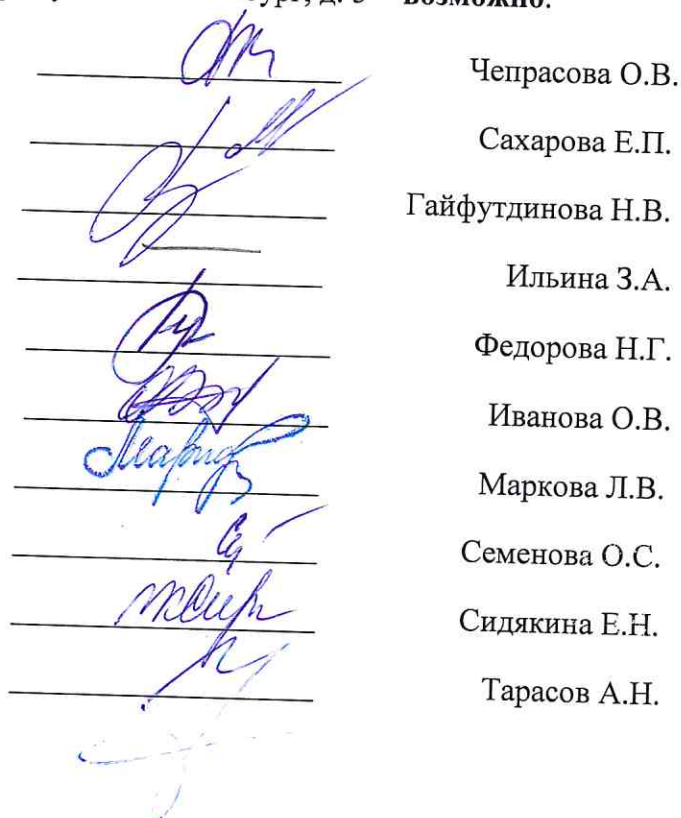 д. 5 – возможно.
Чепрасова О.В.
Сахарова Е.П.
Гайфутдинова Н.В.
Ильина З.А.
Федорова Н.Г.
Иванова О.В.
Маркова Л.В.
Семенова О.С.
Сидякина Е.Н.
Тарасов А.Н.